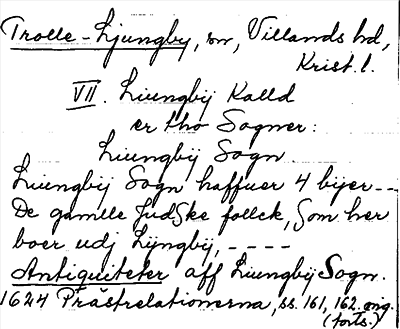 Trolle-Ljungby, sn, Villands hd,
Krist. l.
VII. Liungbÿ Kalld
er tho Sogner:
Liungbÿ Sogn
Liungbÿ Sogn haffuer 4 bÿer--
De gamlle JudSke follck, Som her
boer udj Lÿngbÿ, ----
Antiquiteter aff Liungbÿ Sogn.
1624 Prästrelationerna, ss. 161, 162. orig.
(forts.)